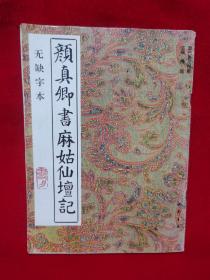 无缺字本
顏真卿書麻姑仙壇記